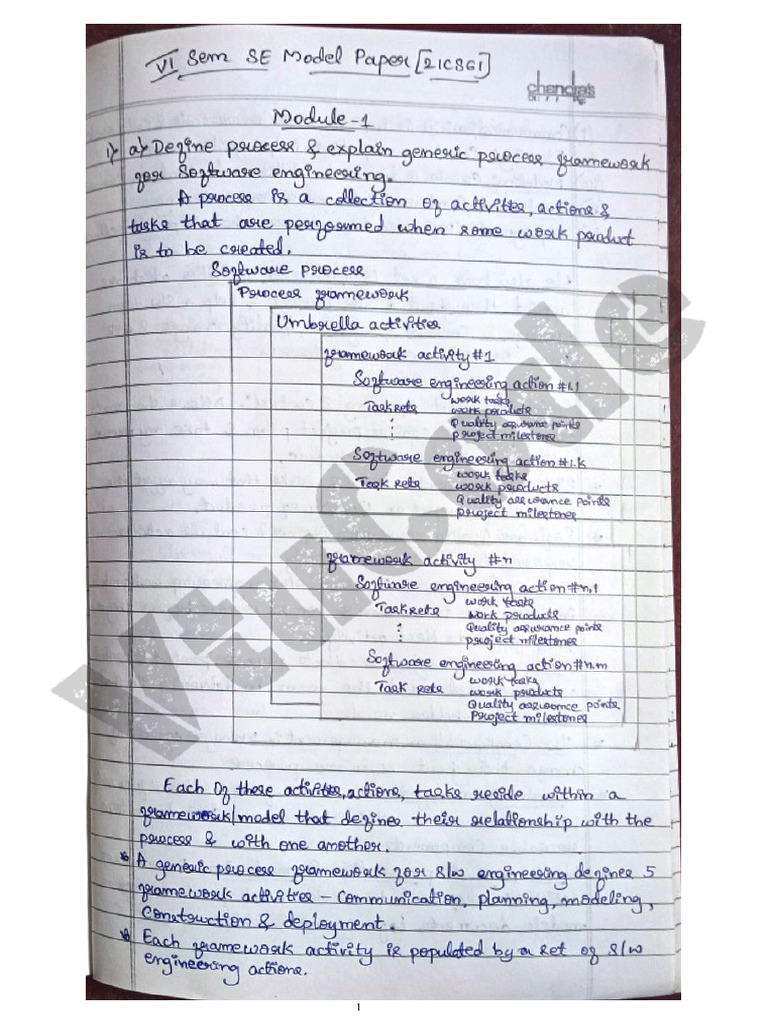 VI Sem SE Model Paper [21CS61]
chandra's
Module-1
1) a) Define process & explain generic process framework
for Software engineering.
A process is a collection of activities, actions &
tasks that are performed when some work product
is to be created.
Software process
Process framework
Umbrella activities
framework activity #1
Software engineering action #1.1
Task sets work tasks
work products
Quality assurance points
project milestones
Software engineering action #1.k
Task sets work tasks
work products
Quality assurance points
project milestones
framework activity #n
Software engineering action #n.1
Task sets work tasks
work products
Quality assurance points
project milestones
Software engineering action #n.m
Task sets work tasks
work products
Quality assurance points
Project milestones
Each of these activities, actions, tasks reside within a
framework/model that defines their relationship with the
process & with one another.
* A generic process framework for s/w engineering defines 5
framework activities - communication, planning, modeling,
construction & deployment.
* Each framework activity is populated by a set of s/w
engineering actions.
VTUCode
1